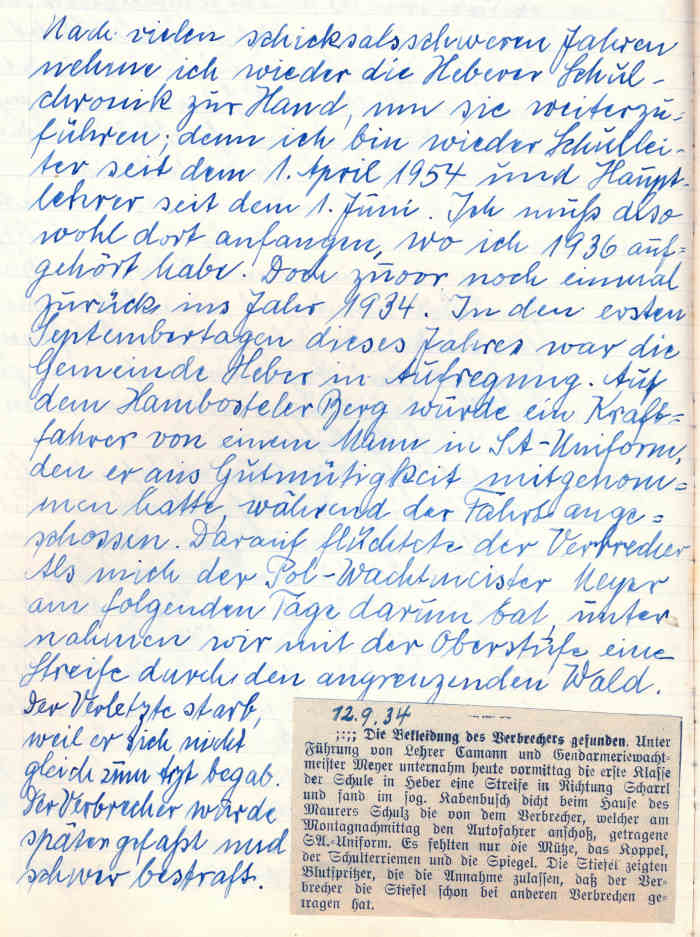 Nach vielen schicksalsschweren Jahren
nehme ich wieder die Heberer Schul-
chronik zur Hand, um sie weiterzu-
führen; denn ich bin wieder Schullei-
ter seit dem 1. April 1954 und Haupt-
lehrer seit dem 1. Juni. Ich muß also
wohl dort anfangen, wo ich 1936 auf-
gehört habe. Doch zuvor noch einmal
zurück ins Jahr 1934. In den ersten
Septembertagen dieses Jahres war die
Gemeinde Heber in Aufregung. Auf
dem Hambosteler Berg wurde ein Kraft-
fahrer von einem Mann in SA-Uniform,
den er aus Gutmütigkeit mitgenom-
men hatte, während der Fahrt ange-
schossen. Darauf flüchtete der Verbrecher
Als mich der Pol-Wachtmeister Meyer
am folgenden Tage darum bat, unter
nahmen wir mit der Oberstufe eine
Streife durch den angrenzenden Wald.
Der Verletzte starb,
weil er sich nicht
gleich zum Arzt begab.
Der Verbrecher wurde
später gefaßt und
schwer bestraft.
12.9.34
;:;; Die Bekleidung des Verbrechers gefunden. Unter
Führung von Lehrer Camann und Gendarmeriewacht-
meister Meyer unternahm heute vormittag die erste Klasse
der Schule in Heber eine Streife in Richtung Scharrl
und fand im sog. Kabenbusch dicht beim Hause des
Maurers Schulz die von dem Verbrecher, welcher am
Montagnachmittag den Autofahrer anschoß, getragene
SA.-Uniform. Es fehlten nur die Mütze, das Koppel,
der Schulterriemen und die Spiegel. Die Stiefel zeigten
Blutspritzer, die die Annahme zulassen, daß der Ver-
brecher die Stiefel schon bei anderen Verbrechen ge-
tragen hat.